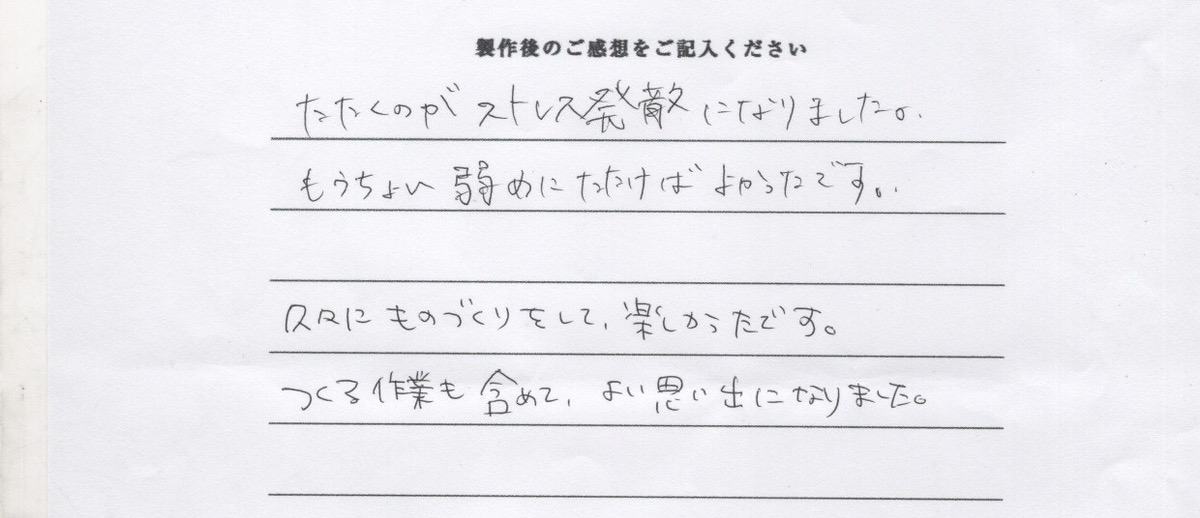 製作後のご感想をご記入ください
たたくのが ストレス発散になりました。
もうちょい 弱めにたたけば よかったです。
久々に ものづくりをして、楽しかったです。
つくる作業も 含めて、よい思い出になりました。